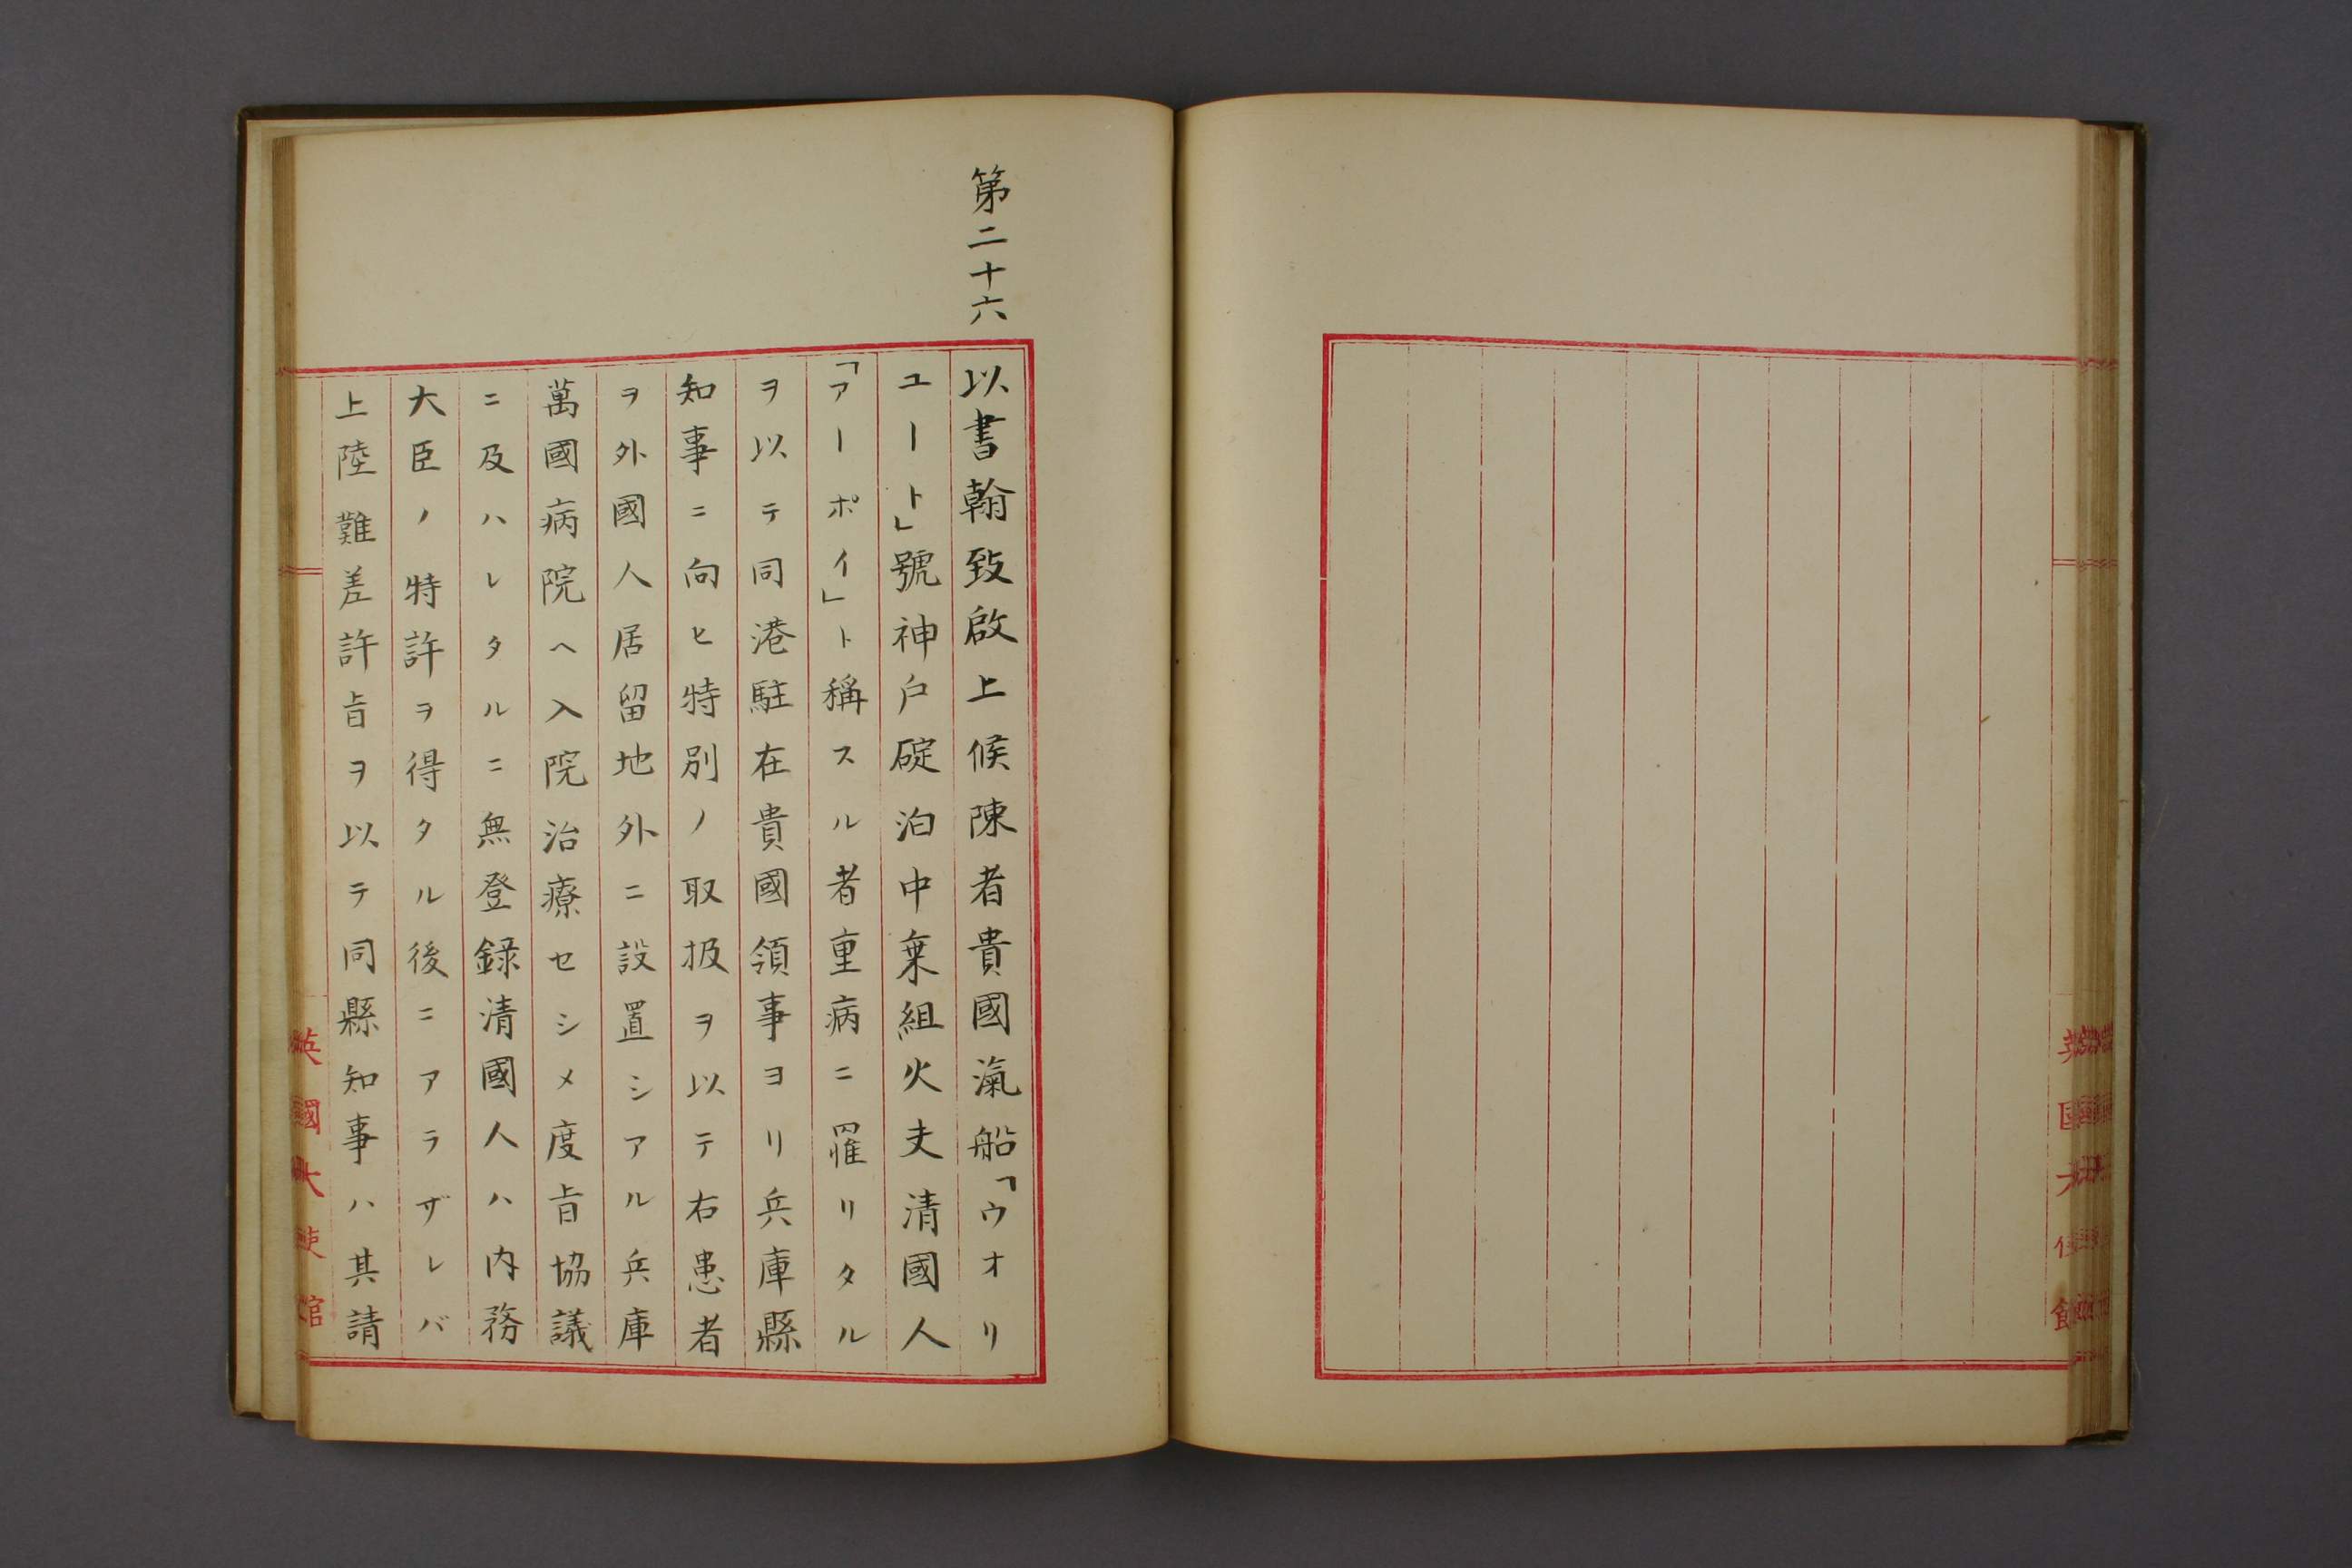 第二十六
以書翰致啟上候陳者貴國滊船「ウオリ
ユート」號神戸碇泊中乗組火夫清國人
「アーポイ」ト稱スル者重病ニ罹リタル
ヲ以テ同港駐在貴國領事ヨリ兵庫縣
知事ニ向ヒ特別ノ取扱ヲ以テ右患者
ヲ外國人居留地外ニ設置シアル兵庫
萬國病院ヘ入院治療セシメ度旨協議
ニ及ハレタルニ無登録清國人ハ内務
大臣ノ特許ヲ得タル後ニアラザレバ
上陸難差許旨ヲ以テ同縣知事ハ其請
英國大使館